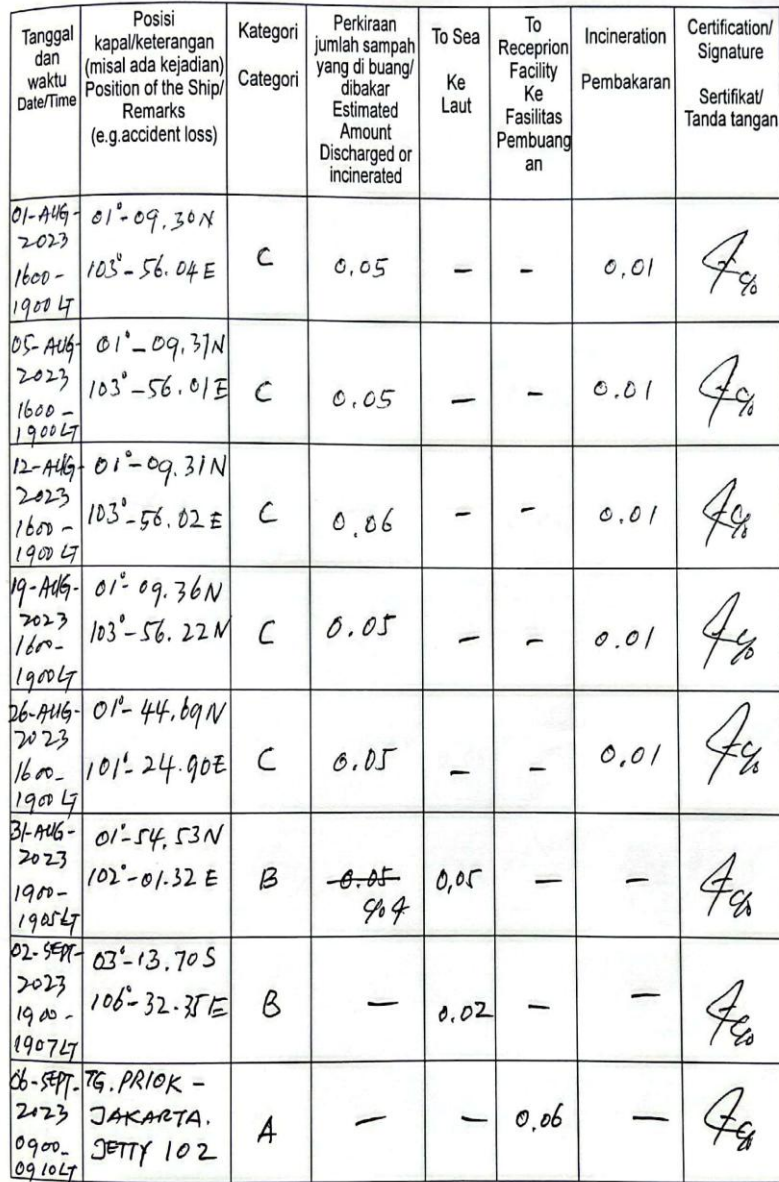 Tanggal
dan
waktu
Date/Time
Posisi
kapal/keterangan
(misal ada kejadian)
Position of the Ship/
Remarks
(e.g.accident loss)
Kategori
Categori
Perkiraan
jumlah sampah
yang di buang/
dibakar
Estimated
Amount
Discharged or
incinerated
To Sea
Ke
Laut
To
Receprion
Facility
Ke
Fasilitas
Pembuang
an
Incineration
Pembakaran
Certification/
Signature
Sertifikat/
Tanda tangan
01-AUG-
2023
1600-
1900 LT
01°-09.30N
103°-56.04E
C
0.05
-
-
0.01
05-AUG-
2023
1600-
1900LT
01°-09.31N
103°-56.01E
C
0.05
-
-
0.01
12-AUG-
2023
1600-
1900 LT
01°-09.31N
103°-56.02E
C
0.06
-
-
0.01
19-AUG-
2023
1600-
1900LT
01°-09.36N
103°-56.22N
C
0.05
-
-
0.01
26-AUG-
2023
1600-
1900 LT
01°-44.69N
101°-24.90E
C
0.05
-
-
0.01
31-AUG-
2023
1900-
1905LT
01°-54.53N
102°-01.32 E
B
0.05
0,05
-
-
02-SEPT-
2023
1900-
1907LT
03°-13.70S
106°-32.35E
B
-
0.02
-
-
06-SEPT-
2023
0900-
0910LT
TG. PRIOK -
JAKARTA.
JETTY 102
A
-
-
0.06
-